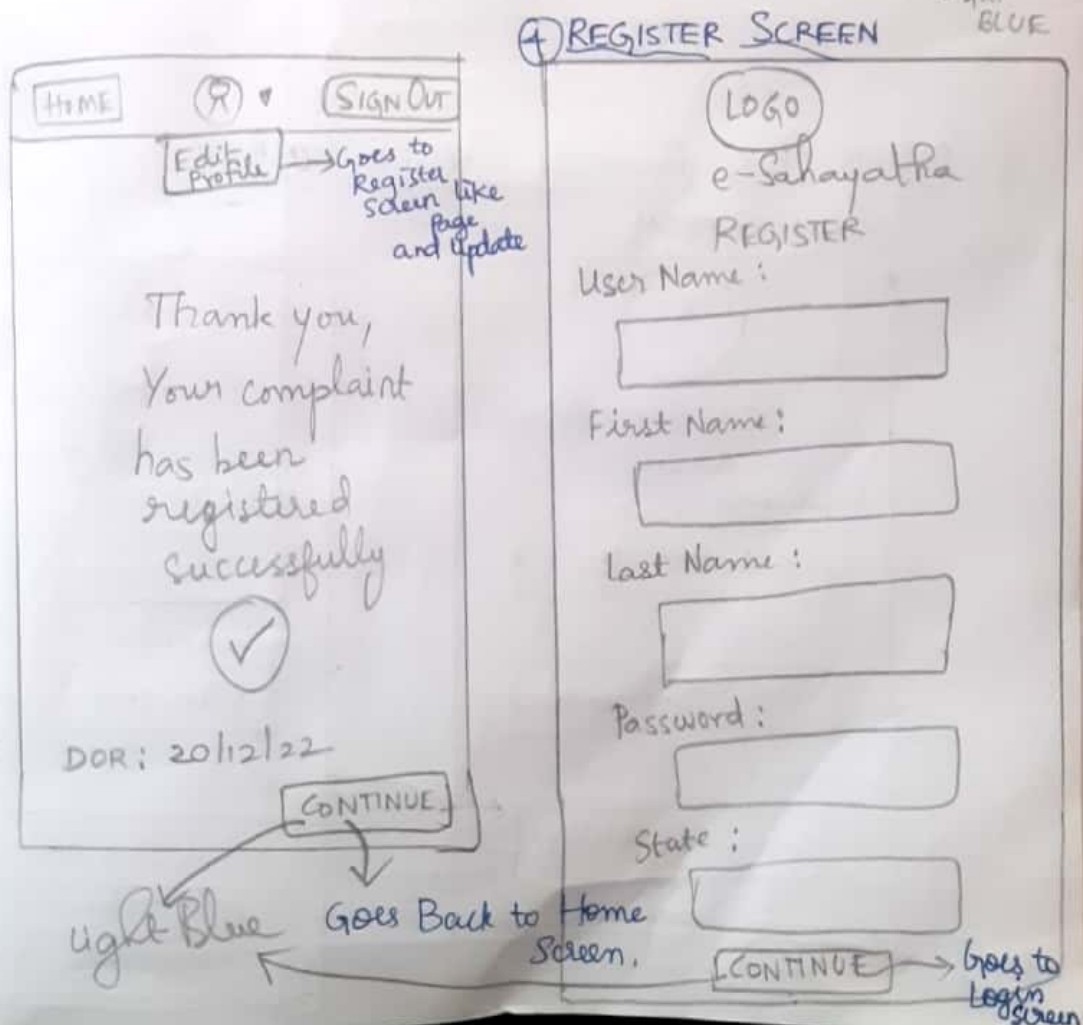 BLUE
④ REGISTER SCREEN
HOME
SIGN OUT
Edit
Profile
Goes to
Register
Screen like
Page
and Update
Thank you,
Your complaint
has been
registered
successfully
DOR: 20/12/22
CONTINUE
Light Blue
Goes Back to Home
Screen.
LOGO
e-Sahayatha
REGISTER
User Name :
First Name :
Last Name :
Password :
State :
CONTINUE
Goes to
Login
Screen